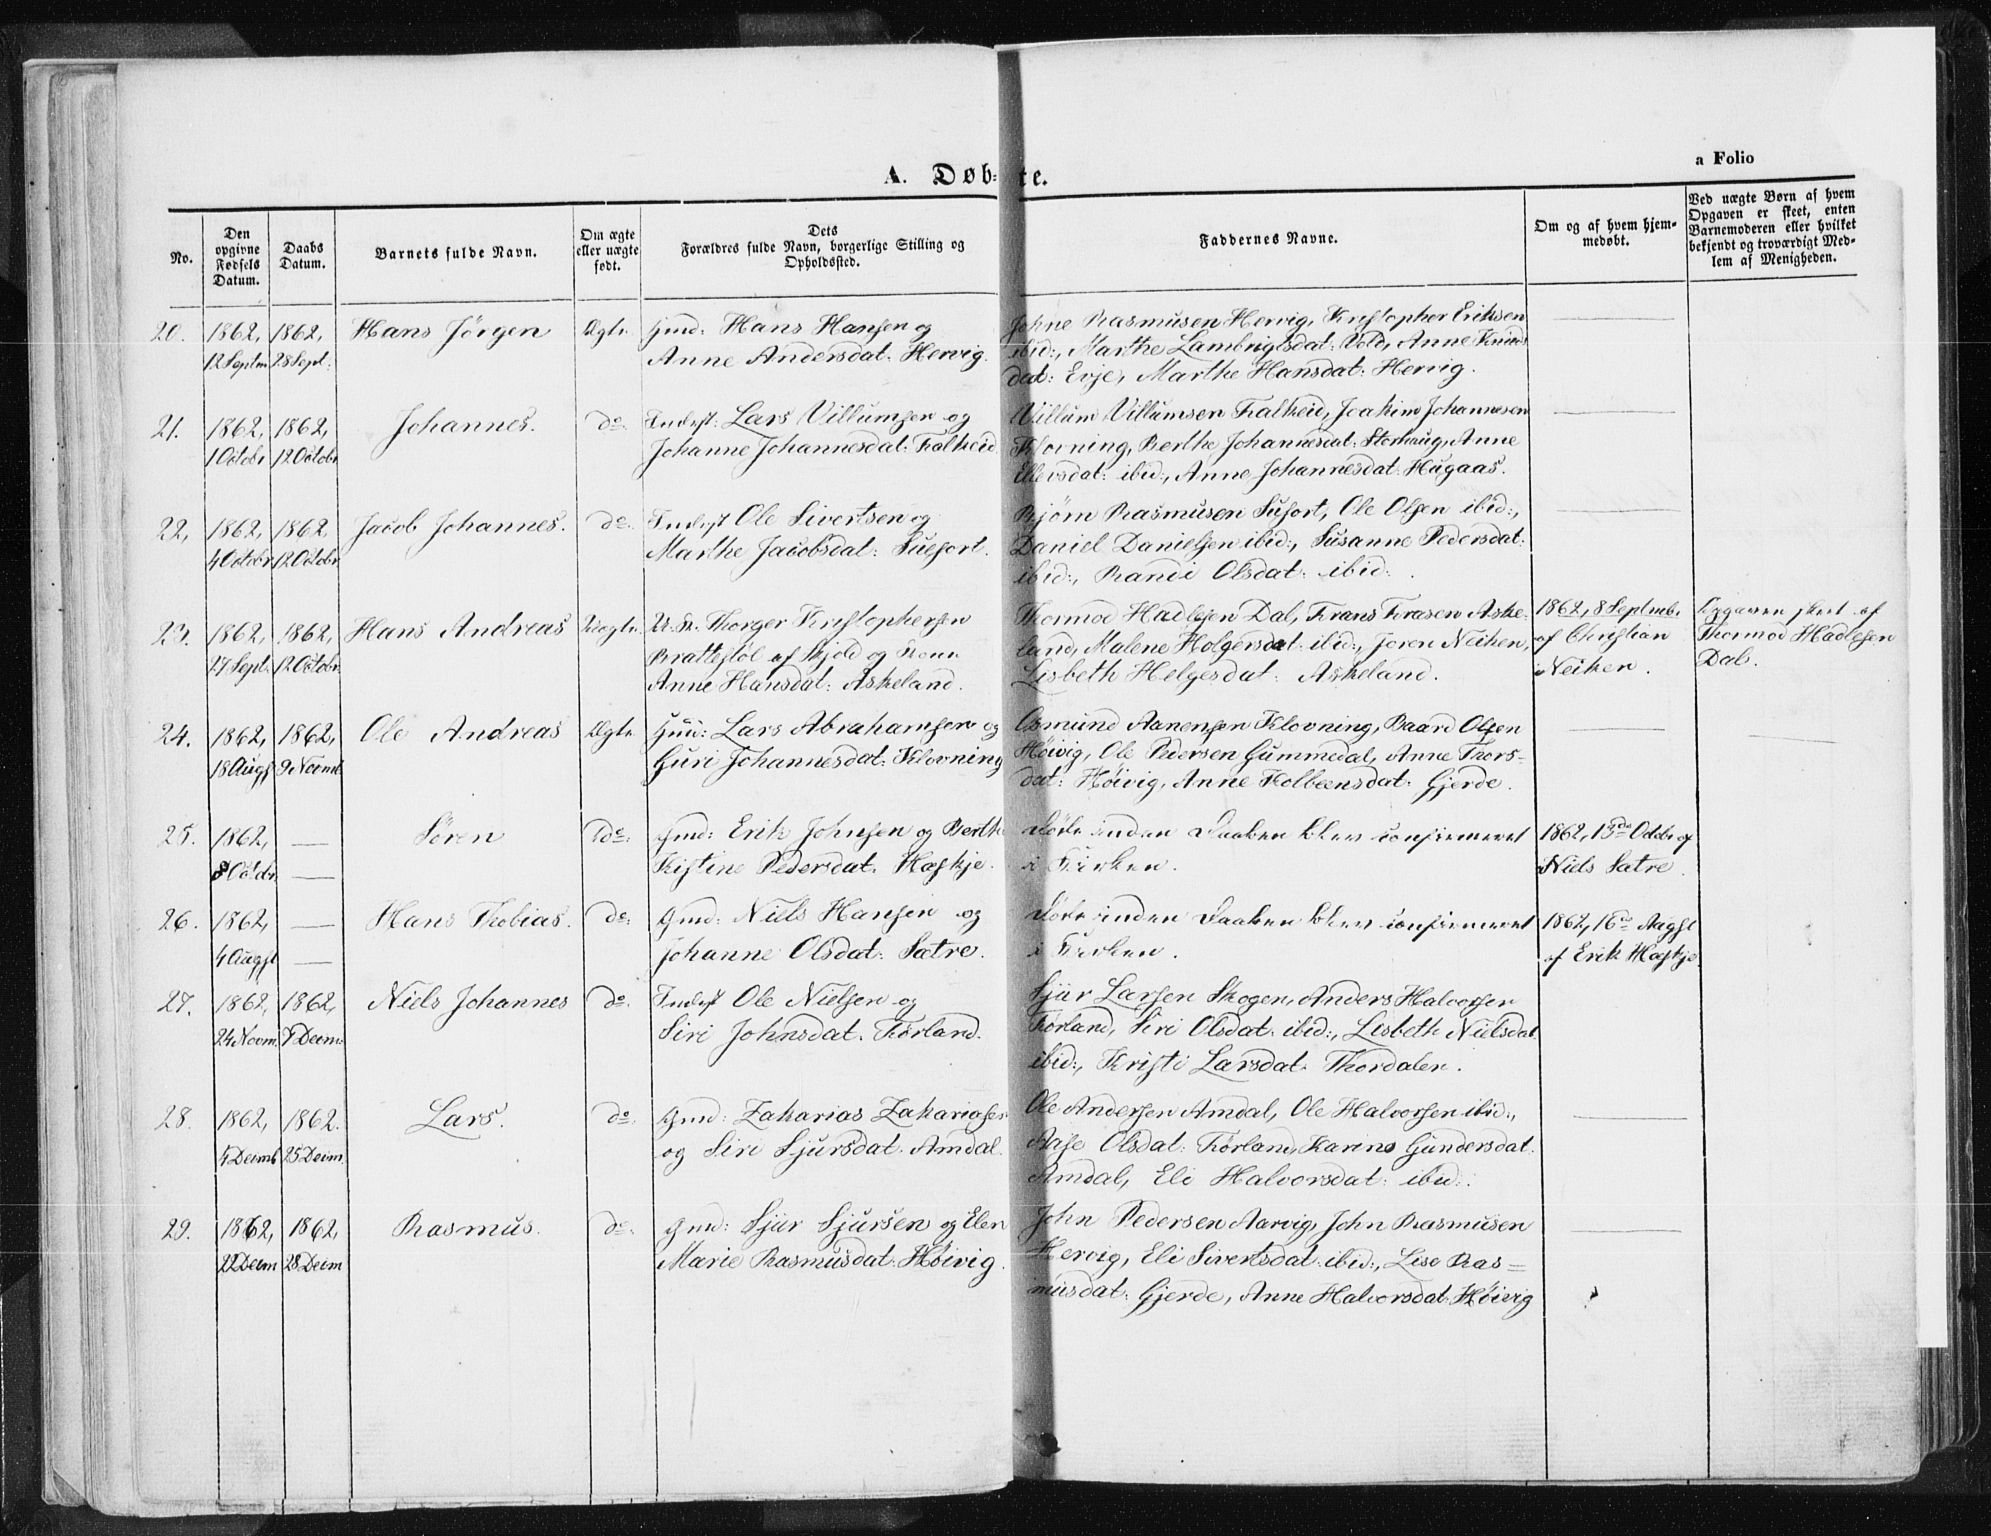 a Folio
A. Døb-te.
No.
Den opgivne Fødsels Datum.
Daabs Datum.
Barnets fulde Navn.
Om ægte eller uægte født.
Dets Forældres fulde Navn, borgerlige Stilling og Opholdssted.
Faddernes Navne.
Om og af hvem hjemmedøbt.
Ved uægte Børn af hvem Opgaven er skeet, enten Barnemoderen eller hvilket bekjendt og troværdigt Medlem af Menigheden.
20. 1862, 12 Septm 1862, 28 Sept: Hans Jörgen Ægte
Gmd: Hans Hansen og
Anne Andersdat: Hervig.
Johne Rasmusen Hervig, Kristopher Eriksen
ibid:, Marthe Lambrigtsdat: Vold, Anne Knuds
dat: Evje, Marthe Hansdat: Hervig.
21. 1862, 1 Octobr 1862, 12 Octobr Johannes. do.
Inderst: Lars Villumsen og
Johanne Johannesdat: Falkeid.
Villum Villumsen Falkeid, Joakim Johannesen
Klovning, Berthe Johannesdat: Storhaug, Anne
Ellevsdat: ibid:, Anne Johannesdat: Hugaas.
22, 1862, 4 Octobr 1862 12 Octobr Jacob Johannes. do.
Inderst Ole Sivertsen og
Marthe Jacobsdat: Suefort.
Björn Rasmusen Sufort, Ole Olsen ibid:,
Daniel Danielsen ibid:, Susanne Pedersdat:
ibid:, Randi Olsdat: ibid:
23. 1862, 27 Sept: 1862, 12 Octobr. Hans Andreas Uægte
U. K. Thorger Kristophersen
Brattestöl af Skjold og Kone
Anne Hansdat: Askeland.
Thormod Hadlesen Dal, Frans Frasen Aske-
land, Malene Holgersdat: ibid:, Joren Neiken,
Lisbeth Helgesdat: Askeland.
1862, 8 Septmb.
af Christian
Neiken.
Opgaven skeet af
Thormod Hadlesen
Dal.
24. 1862, 18 Augst 1862, 9 Novmb Ole Andreas Ægte
Gmd: Lars Abrahamsen og
Guri Johannesdat: Klovning
Osmund Aanensen Klovning, Baard Olsen
Höivig, Ole Pedersen Gummedal, Anne Thors-
dat: Höivig, Anne Kolbeensdat: Gjerde.
25. 1862, 8 Octobr Sören do:
Gmd: Erik Johnsen og Berthe
Kistine Pedersdat: Hoskje.
Döde inden Daaben blev confirmeret
i Kirken.
1862, 13de Octobr af
Niels Satre.
26. 1862, 4 Augst Hans Thobias. do:
Gmd: Niels Hansen og
Johanne Olsdat: Satre.
Döde inden Daaben blev confirmeret
i Kirken.
1862, 16de Augst
af Erik Hoskje.
27. 1862, 24 Novm. 1862, 7 Decm: Niels Johannes do.
Inderst Ole Nielsen og
Siri Johnsdat: Førland.
Sjur Larsen Skogen, Anders Halvorsen
Førland, Siri Olsdat: ibid:, Lisbeth Nielsdat:
ibid:, Kristi Larsdat: Thordalen.
28. 1862, 4 Decmb 1862. 25 Decm. Lars. do.
Gmd: Zakarias Zakariasen
og Siri Sjursdat: Amdal.
Ole Andersen Amdal, Ole Halvorsen ibid:,
Aase Olsdat: Førland, Karine Gundersdat:
Amdal, Eli Halvorsdat: ibid:
29. 1862, 22 Decm 1862, 28 Decm Rasmus. do:
Gmd: Sjur Sjursen og Elen
Marie Rasmusdat: Höivig.
John Pedersen Aarvig, John Rasmusen
Hervig, Eli Sivertsdat: ibid:, Lise Ras=
musdat: Gjerde, Anne Halvorsdat: Höivig